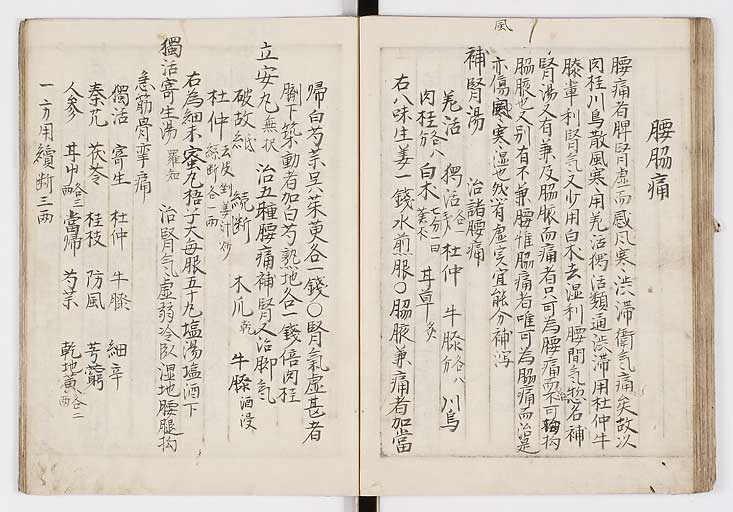 風
腰脇痛
腰痛者脾腎虚而感風寒渋滞衛気痛矣故以
肉桂川烏散風寒用羗活獨活類通渋滞用杜仲牛
膝輩利腎気又少用白木去湿利腰間気惣名補
腎湯又有兼及脇腋而痛者只可為腰痛而不可拘
脇腋也又別有不兼腰惟脇痛者唯可為脇痛而治是
亦傷風寒湿也然省虚実宜能分補瀉
補腎湯 治諸腰痛
羗活 獨活各二 杜仲 牛膝各八 川烏
肉桂各八 白木 甘草炙
右八味生姜一錢水煎服〇脇腋兼痛者加當
帰白芍薬呉茱萸各一錢〇腎氣虚甚者
臍下築動者加白芍熟地各一錢倍肉桂
立安丸 無択 治五種腰痛補腎又治脚氣
破故紙 続断 木瓜乾 牛膝酒浸
杜仲去皮剉姜汁炒絲断各一両
右為細末蜜丸梧子大毎服五十丸塩湯塩酒下
獨活寄生湯 羅知 治腎気虚弱冷臥湿地腰腿拘
急筋骨攣痛
獨活 寄生 杜仲 牛膝 細辛
秦艽 茯苓 桂枝 防風 芎藭
人参 甘中各三両 當帰 芍薬 乾地黄各二両
一方用續断三両